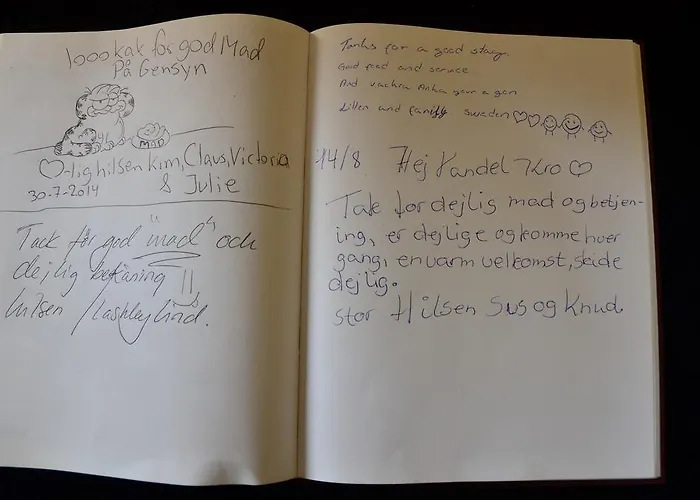 1000 kak for god Mad
På Gensyn
MAD
♡-lig hilsen Kim, Claus, Victoria
30-7-2014 & Julie
Tack för god "mad" och
dejlig betjäning !!
hilsen
Tanks for a good stay.
Good food and service
And vackra Anha your a gem
Lillen and family sweden ♡♡
14/8 Hej Vandel Kro ♡
Tak for dejlig mad og betjen-
ing, er dejlige og komme hver
gang, en varm velkomst, så
dejlig.
stor Hilsen Sus og Knud.